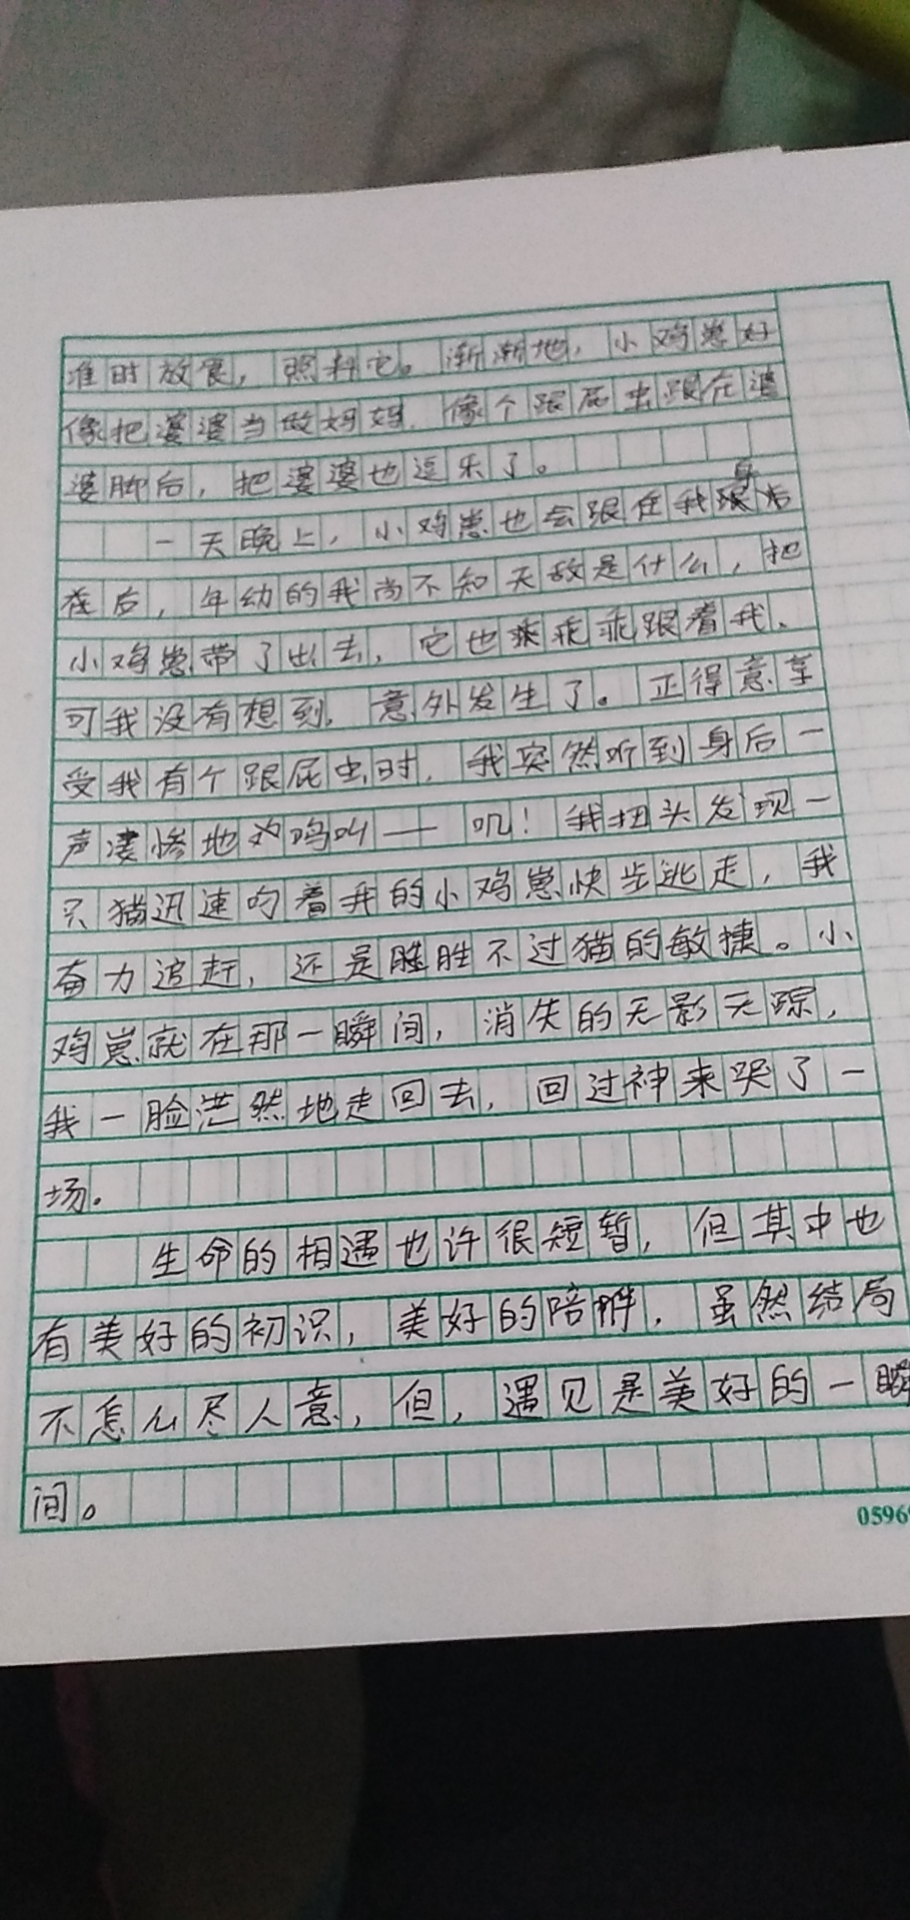 准时放食，照料它。渐渐地，小鸡崽好
像把婆婆当做妈妈，像个跟屁虫跟在婆
婆脚后，把婆婆也逗乐了。
一天晚上，小鸡崽也会跟在我身后
在后，年幼的我尚不知天敌是什么，把
小鸡崽带了出去，它也乖乖跟着我、
可我没有想到，意外发生了。正得意享
受我有个跟屁虫时，我突然听到身后一
声凄惨地鸣叫——叽！我扭头发现一
只猫迅速叼着我的小鸡崽快步逃走，我
奋力追赶，还是胜不过猫的敏捷。小
鸡崽就在那一瞬间，消失的无影无踪，
我一脸茫然地走回去，回过神来哭了一
场。
生命的相遇也许很短暂，但其中也
有美好的初识，美好的陪伴，虽然结局
不怎么尽人意，但，遇见是美好的一瞬
间。
0596